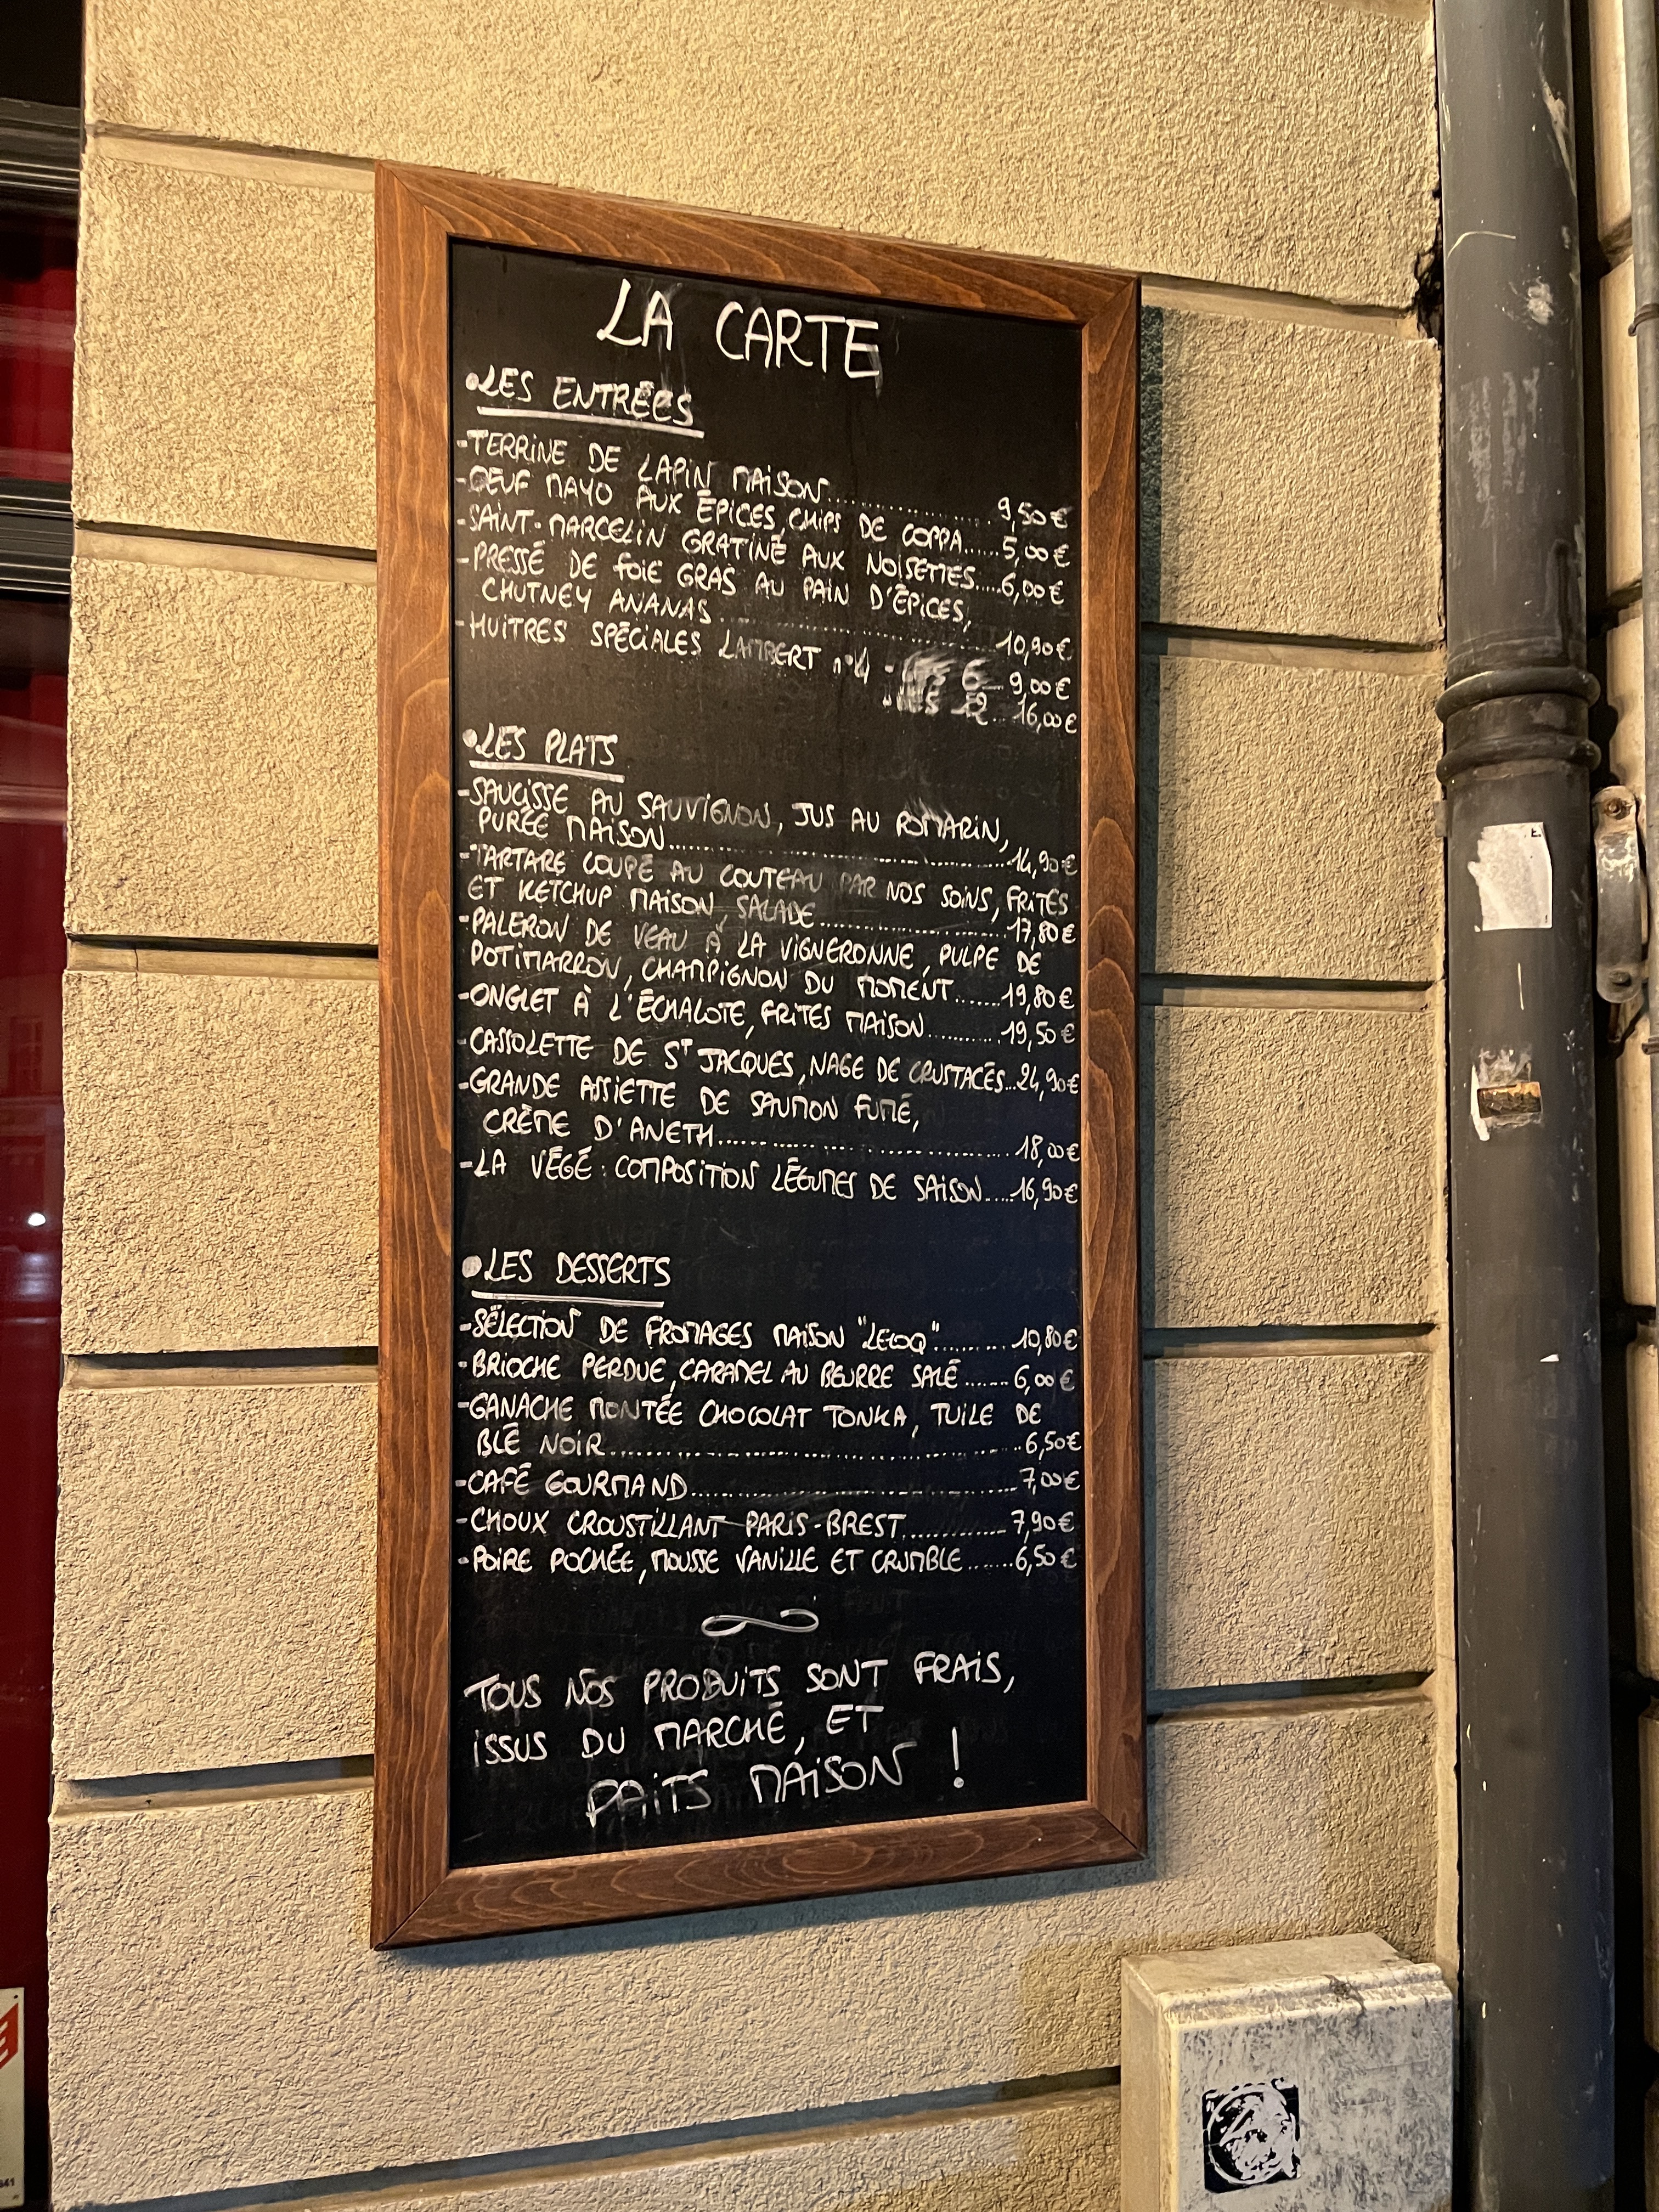 LA CARTE
•LES ENTRÉES
-TERRINE DE LAPIN MAISON.................... 9,50€
-OEUF MAYO AUX ÉPICES, CHIPS DE COPPA......5,00€
-SAINT-MARCELIN GRATINÉ AUX NOISETTES.....6,00€
-PRESSÉ DE FOIE GRAS AU PAIN D'ÉPICES,
CHUTNEY ANANAS....................... 10,90€
-HUITRES SPÉCIALES LAMBERT n°4 - 6.... 9,00€
12... 16,00€
•LES PLATS
-SAUCISSE AU SAUVIGNON, JUS AU ROMARIN,
PURÉE MAISON..............................14,90€
-TARTARE COUPÉ AU COUTEAU PAR NOS SOINS, FRITES
ET KETCHUP MAISON, SALADE.................... 17,80€
-PALERON DE VEAU À LA VIGNERONNE, PULPE DE
POTIMARRON, CHAMPIGNON DU MOMENT.......19,80€
-ONGLET À L'ÉCHALOTE, FRITES MAISON...........19,50€
-CASSOLETTE DE ST JACQUES, NAGE DE CRUSTACÉS...24,90€
-GRANDE ASSIETTE DE SAUMON FUMÉ,
CRÈME D'ANETH.............................. 18,00€
-LA VÉGÉ : COMPOSITION LÉGUMES DE SAISON.....16,90€
•LES DESSERTS
-SÉLECTION DE FROMAGES MAISON "LECOQ".......... 10,80€
-BRIOCHE PERDUE, CARAMEL AU BEURRE SALÉ.......6,00€
-GANACHE MONTÉE CHOCOLAT TONKA, TUILE DE
BLÉ NOIR...................................6,50€
-CAFÉ GOURMAND..............................7,00€
-CHOUX CROUSTILLANT PARIS-BREST.............7,90€
-POIRE POCHÉE, MOUSSE VANILLE ET CRUMBLE.......6,50€
TOUS NOS PRODUITS SONT FRAIS,
ISSUS DU MARCHÉ, ET
FAITS MAISON !